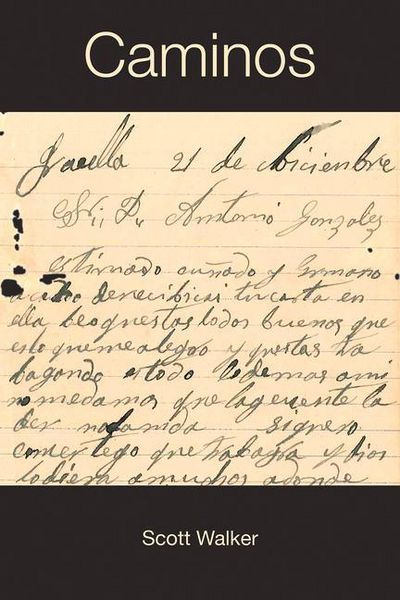 Caminos
21 de Diciembre
Sr. D. Antonio Gonzalez
estimado cuñado y ermano
de recibir tu carta en
ella beo que estas todos buenos que
eso que me alegro y que estas tra
bagando es todo lo demas a mi
no me da mas que la gente la
ber
comer tego que trabagra y dios
a muchos adonde
Scott Walker